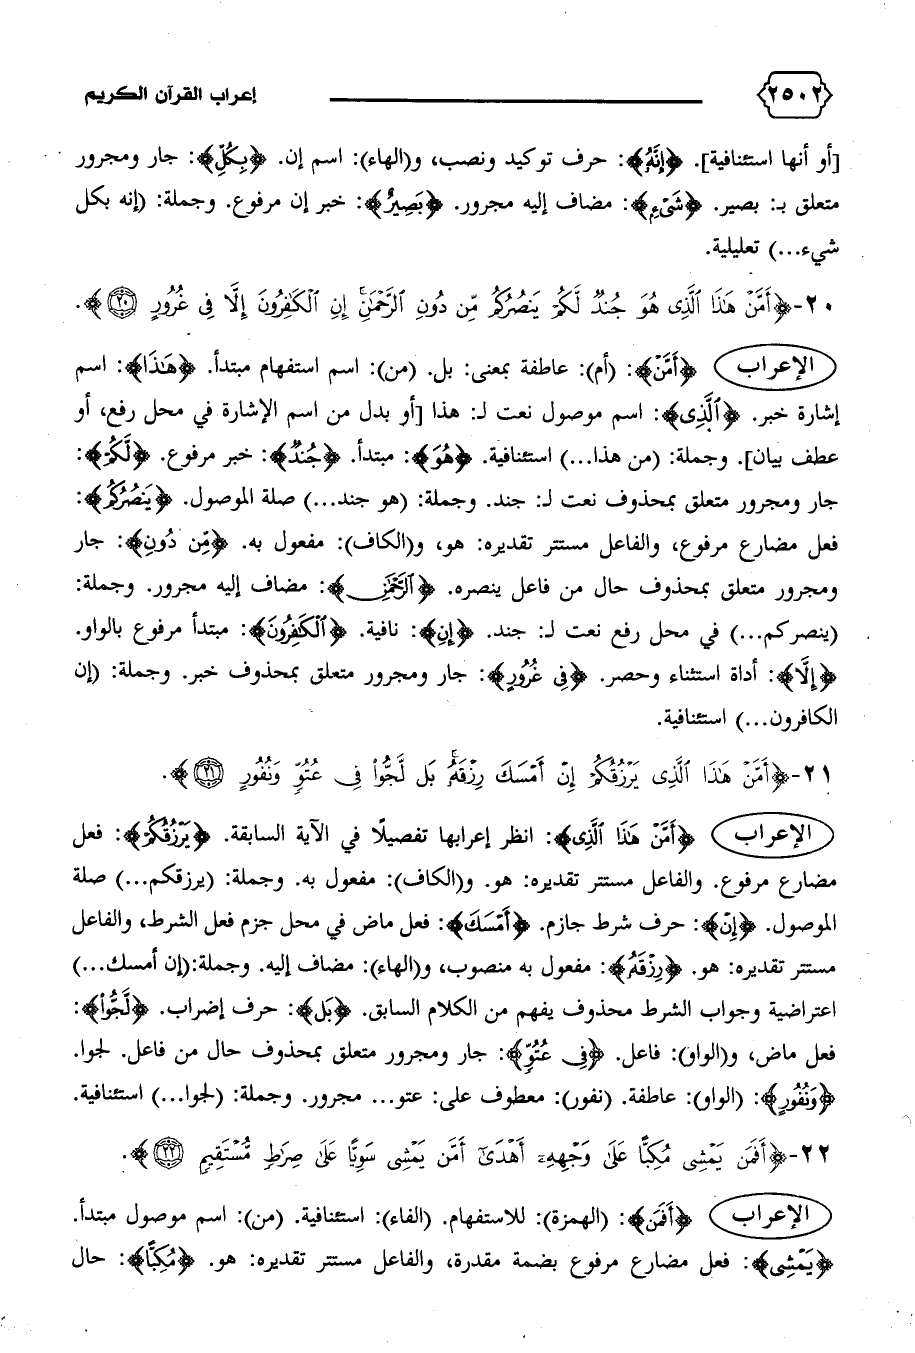 ٢٥٠٢ إعراب القرآن الكريم
[أو أنها استئنافية]. ﴿إِنَّهُۥ﴾: حرف توكيد ونصب، و(الهاء): اسم إن. ﴿بِكُلِّ﴾: جار ومجرور
متعلق بـ: بصير. ﴿شَىْءٍ﴾: مضاف إليه مجرور. ﴿بَصِيرٌ﴾: خبر إن مرفوع. وجملة: (إنه بكل
شيء...) تعليلية.
٢٠-﴿أَمَّنْ هَٰذَا ٱلَّذِى هُوَ جُندٌ لَّكُمْ يَنصُرُكُم مِّن دُونِ ٱلرَّحْمَٰنِ ۚ إِنِ ٱلْكَٰفِرُونَ إِلَّا فِى غُرُورٍ ﴿٢٠﴾﴾.
الإعراب ﴿أَمَّنْ﴾: (أم): عاطفة بمعنى: بل. (من): اسم استفهام مبتدأ. ﴿هَٰذَا﴾: اسم
إشارة خبر. ﴿ٱلَّذِى﴾: اسم موصول نعت لـ: هذا [أو بدل من اسم الإشارة في محل رفع، أو
عطف بيان]. وجملة: (من هذا...) استئنافية. ﴿هُوَ﴾: مبتدأ. ﴿جُندٌ﴾: خبر مرفوع. ﴿لَّكُمْ﴾:
جار ومجرور متعلق بمحذوف نعت لـ: جند. وجملة: (هو جند...) صلة الموصول. ﴿يَنصُرُكُم﴾:
فعل مضارع مرفوع، والفاعل مستتر تقديره: هو، و(الكاف): مفعول به. ﴿مِّن دُونِ﴾: جار
ومجرور متعلق بمحذوف حال من فاعل ينصره. ﴿ٱلرَّحْمَٰنِ﴾: مضاف إليه مجرور. وجملة:
(ينصركم...) في محل رفع نعت لـ: جند. ﴿إِنِ﴾: نافية. ﴿ٱلْكَٰفِرُونَ﴾: مبتدأ مرفوع بالواو.
﴿إِلَّا﴾: أداة استثناء وحصر. ﴿فِى غُرُورٍ﴾: جار ومجرور متعلق بمحذوف خبر. وجملة: (إن
الكافرون...) استئنافية.
٢١-﴿أَمَّنْ هَٰذَا ٱلَّذِى يَرْزُقُكُمْ إِنْ أَمْسَكَ رِزْقَهُۥ ۚ بَل لَّجُّوا۟ فِى عُتُوٍّ وَنُفُورٍ ﴿٢١﴾﴾.
الإعراب ﴿أَمَّنْ هَٰذَا ٱلَّذِى﴾: انظر إعرابها تفصيلًا في الآية السابقة. ﴿يَرْزُقُكُمْ﴾: فعل
مضارع مرفوع. والفاعل مستتر تقديره: هو. و(الكاف): مفعول به. وجملة: (يرزقكم...) صلة
الموصول. ﴿إِنْ﴾: حرف شرط جازم. ﴿أَمْسَكَ﴾: فعل ماض في محل جزم فعل الشرط، والفاعل
مستتر تقديره: هو. ﴿رِزْقَهُۥ﴾: مفعول به منصوب، و(الهاء): مضاف إليه. وجملة:(إن أمسك...)
اعتراضية وجواب الشرط محذوف يفهم من الكلام السابق. ﴿بَل﴾: حرف إضراب. ﴿لَّجُّوا۟﴾:
فعل ماض، و(الواو): فاعل. ﴿فِى عُتُوٍّ﴾: جار ومجرور متعلق بمحذوف حال من فاعل. لجوا.
﴿وَنُفُورٍ﴾: (الواو): عاطفة. (نفور): معطوف على: عتو... مجرور. وجملة: (لجوا...) استئنافية.
٢٢-﴿أَفَمَن يَمْشِى مُكِبًّا عَلَىٰ وَجْهِهِۦٓ أَهْدَىٰٓ أَمَّن يَمْشِى سَوِيًّا عَلَىٰ صِرَٰطٍ مُّسْتَقِيمٍ ﴿٢٢﴾﴾.
الإعراب ﴿أَفَمَن﴾: (الهمزة): للاستفهام. (الفاء): استئنافية. (من): اسم موصول مبتدأ.
﴿يَمْشِى﴾: فعل مضارع مرفوع بضمة مقدرة، والفاعل مستتر تقديره: هو. ﴿مُكِبًّا﴾: حال